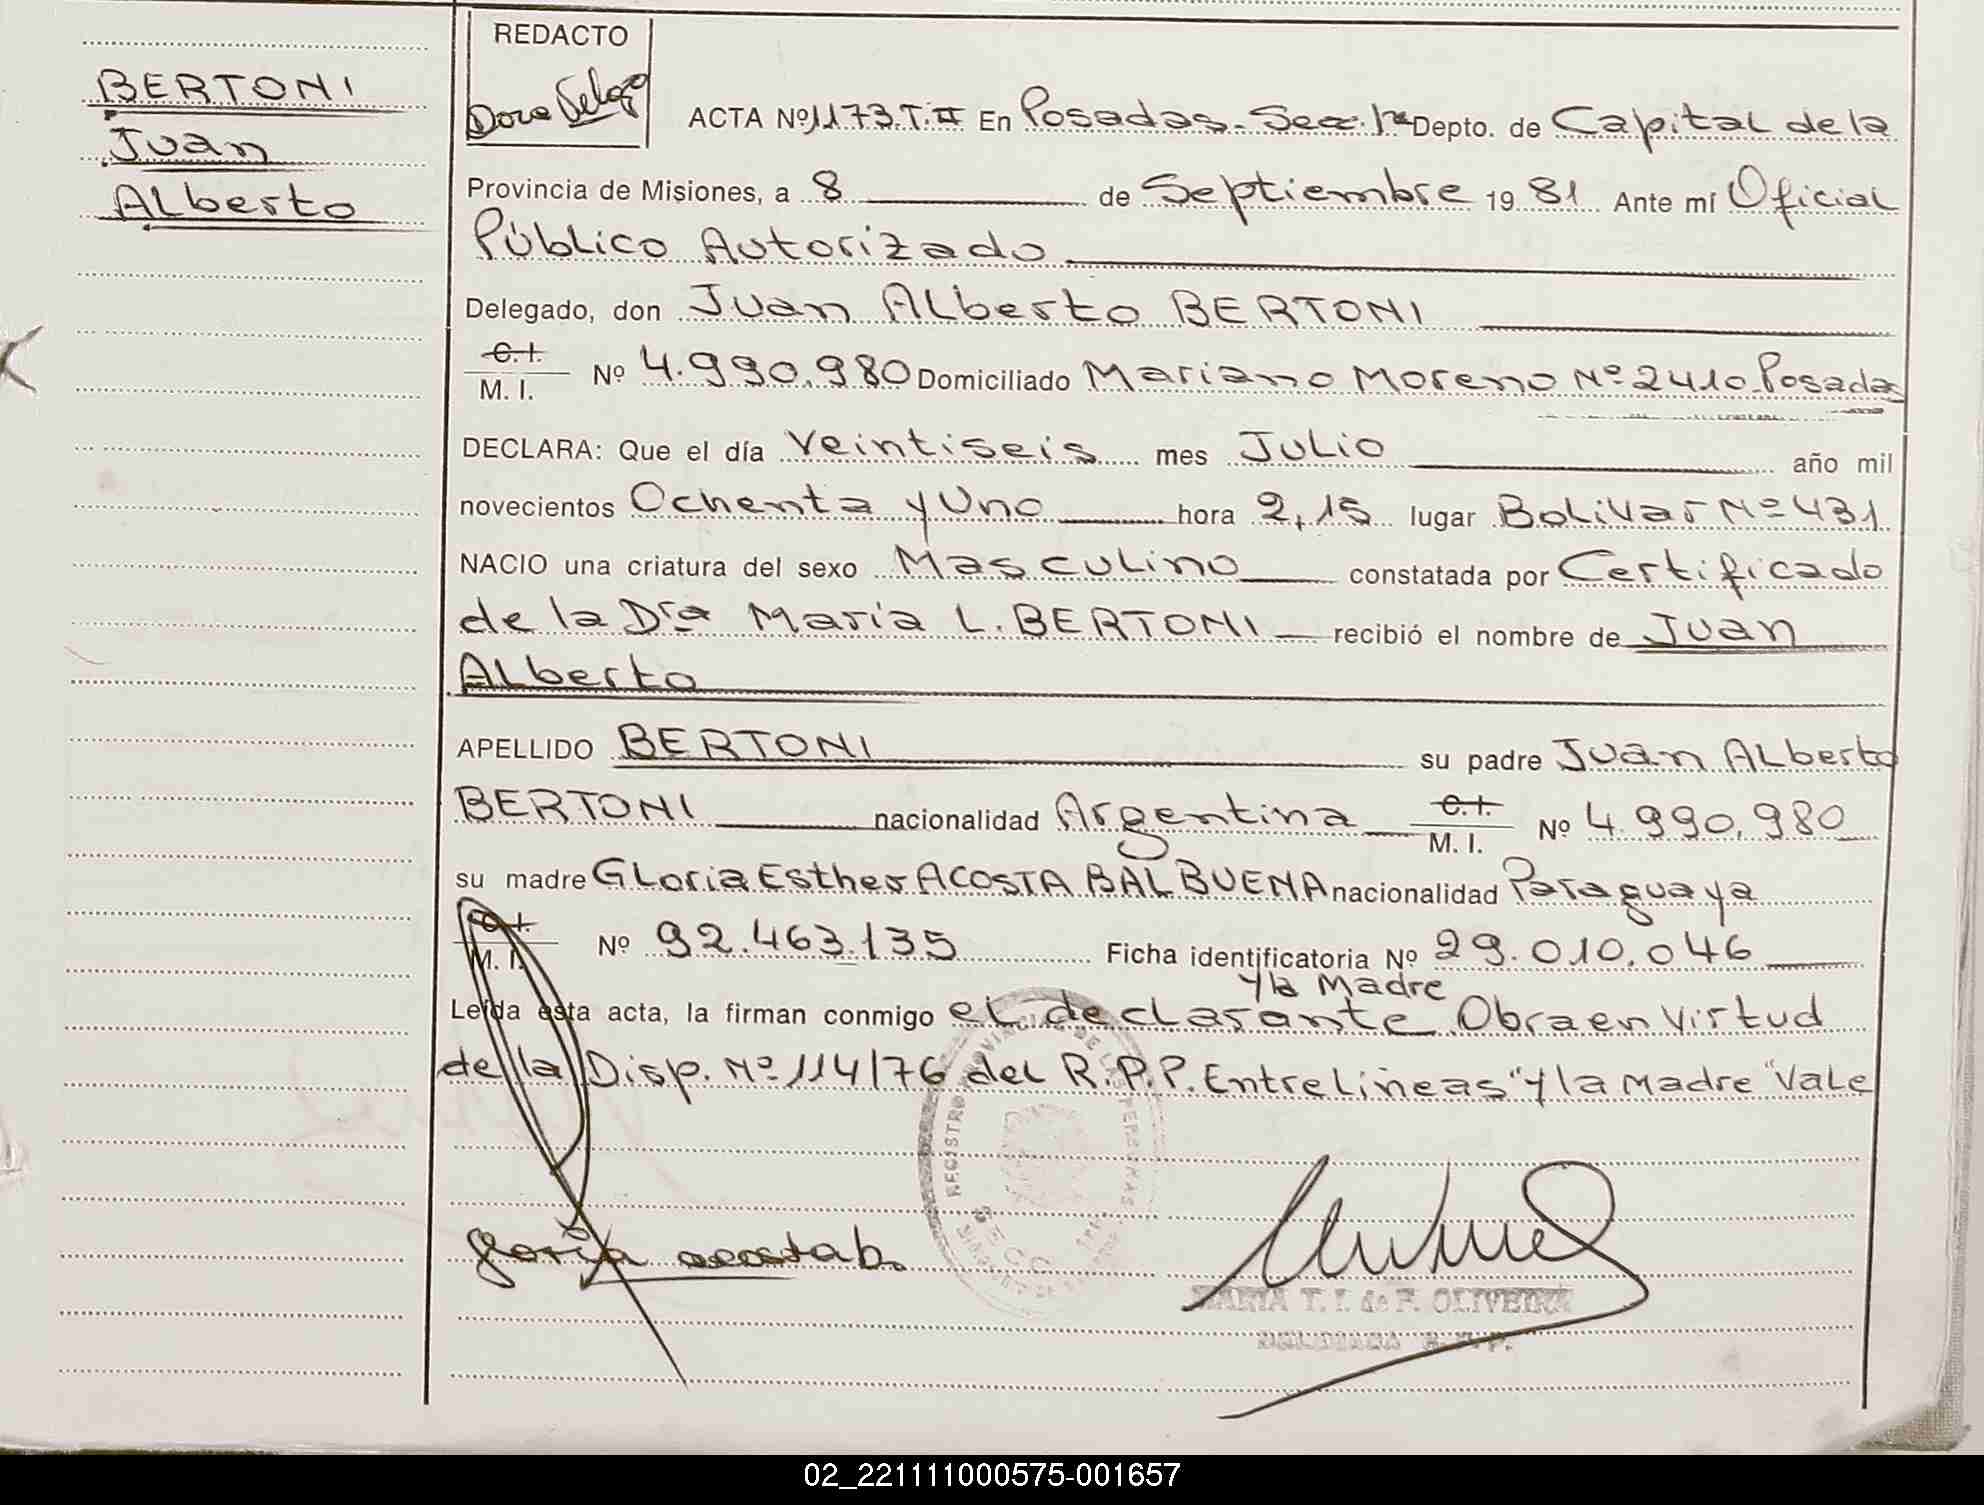 BERTONI
Juan
Alberto
REDACTO
Dora
ACTA Nº 1173.T.II En Posadas. Secc. 1ra Depto. de Capital de la
Provincia de Misiones, a 8 de Septiembre 19 81 Ante mí Oficial
Público Autorizado
Delegado, don Juan Alberto BERTONI
C.I.
M. I. Nº 4.990.980 Domiciliado Mariano Moreno Nº 2410 Posadas
DECLARA: Que el día Veintiseis mes Julio año mil
novecientos Ochenta y Uno hora 2,15 lugar Bolivar Nº 431
NACIO una criatura del sexo Masculino constatada por Certificado
de la Dra María L. BERTONI recibió el nombre de Juan
Alberto
APELLIDO BERTONI su padre Juan Alberto
BERTONI nacionalidad Argentina C.I. M. I. Nº 4.990.980
su madre Gloria Esther ACOSTA BALBUENA nacionalidad Paraguaya
C.I.
M. I. Nº 92.463.135 Ficha identificatoria Nº 29.010.046
y la Madre
Leída esta acta, la firman conmigo el declarante Obra en Virtud
de la Disp. Nº 114/76 del R.P.P. Entrelineas "y la Madre" Vale
REGISTRO PROVINCIAL DE LAS PERSONAS
SECC.
gloria acosta b.
MARIA T. I. de F. OLIVEIRA
DELEGADA R. P. P.
02_221111000575-001657